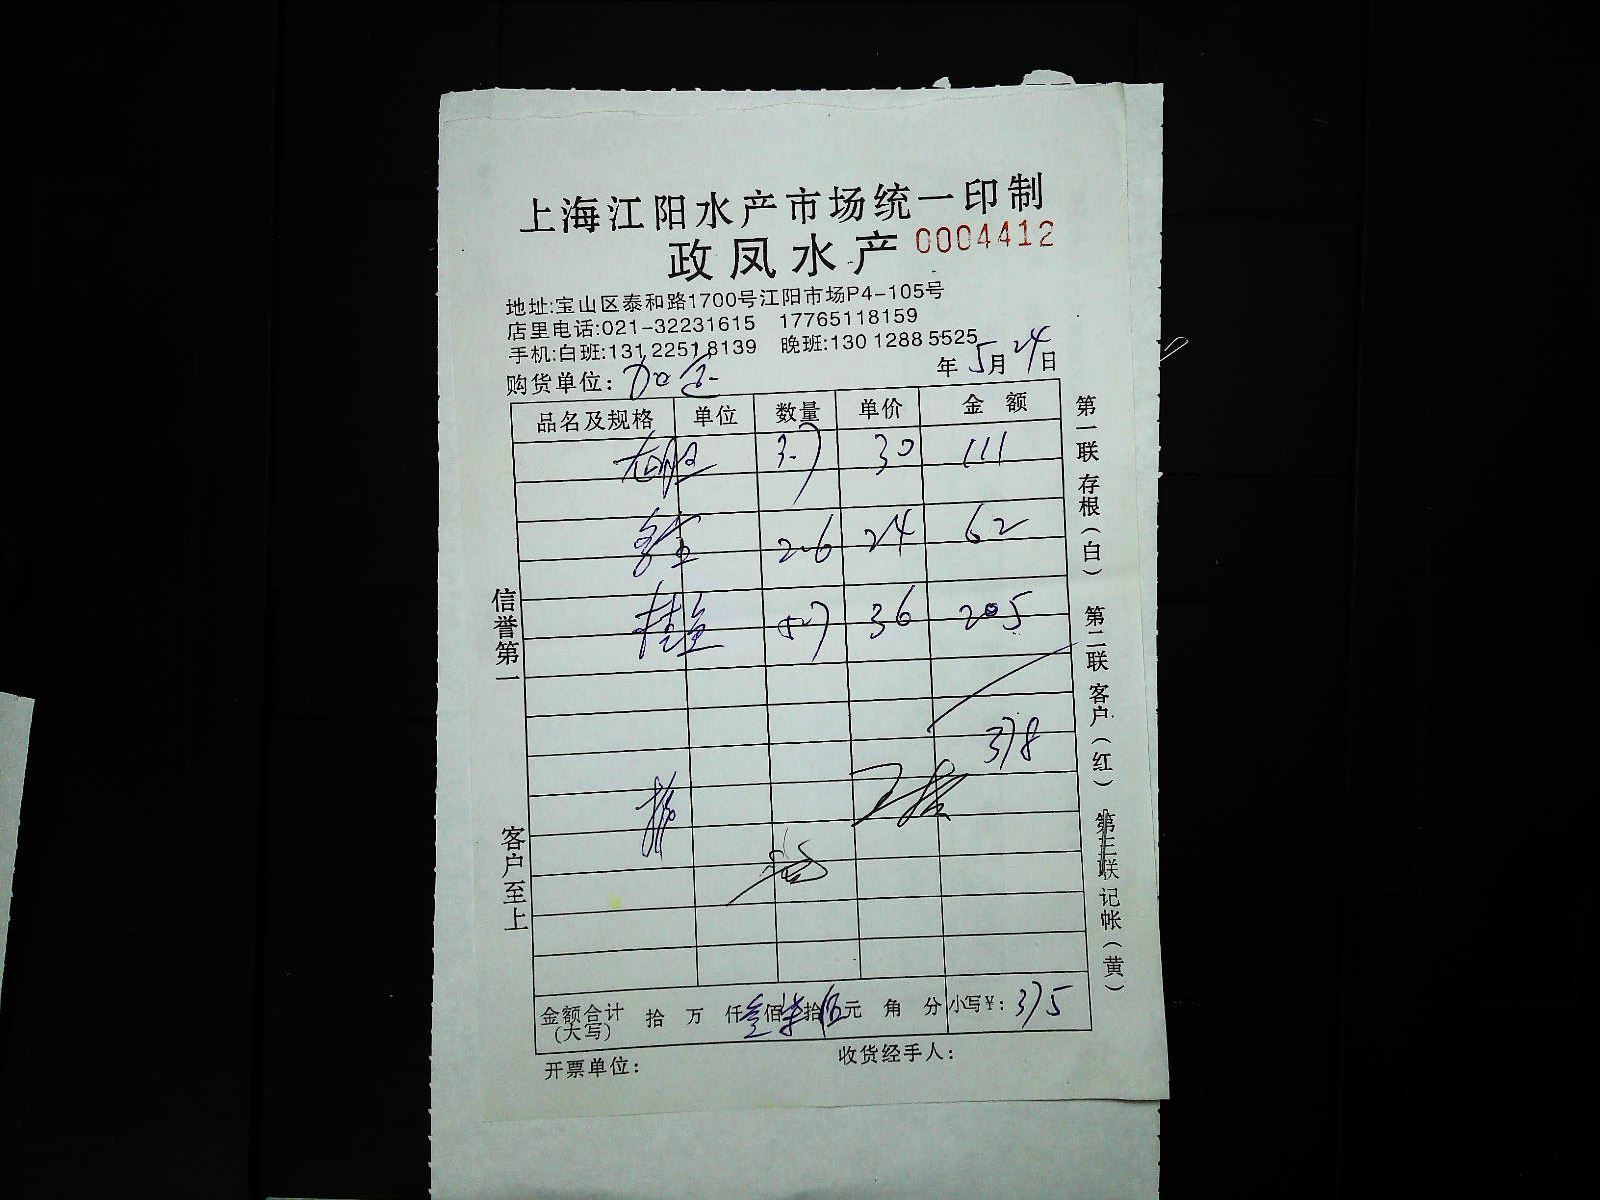 上海江阳水产市场统一印制
政凤水产 0004412
地址:宝山区泰和路1700号江阳市场P4-105号
店里电话:021-32231615 17765118159
手机:白班:131 2251 8139 晚班:130 1288 5525
购货单位: 年5月24日
品名及规格 单位 数量 单价 金额
3.7 30 111
2.6 24 62
桂鱼 5.7 36 205
378
金额合计(大写) 拾 万 仟 佰柒拾伍元 角 分 小写¥: 375
开票单位: 收货经手人:
信誉第一 客户至上
第一联存根(白) 第二联客户(红) 第三联记帐(黄)